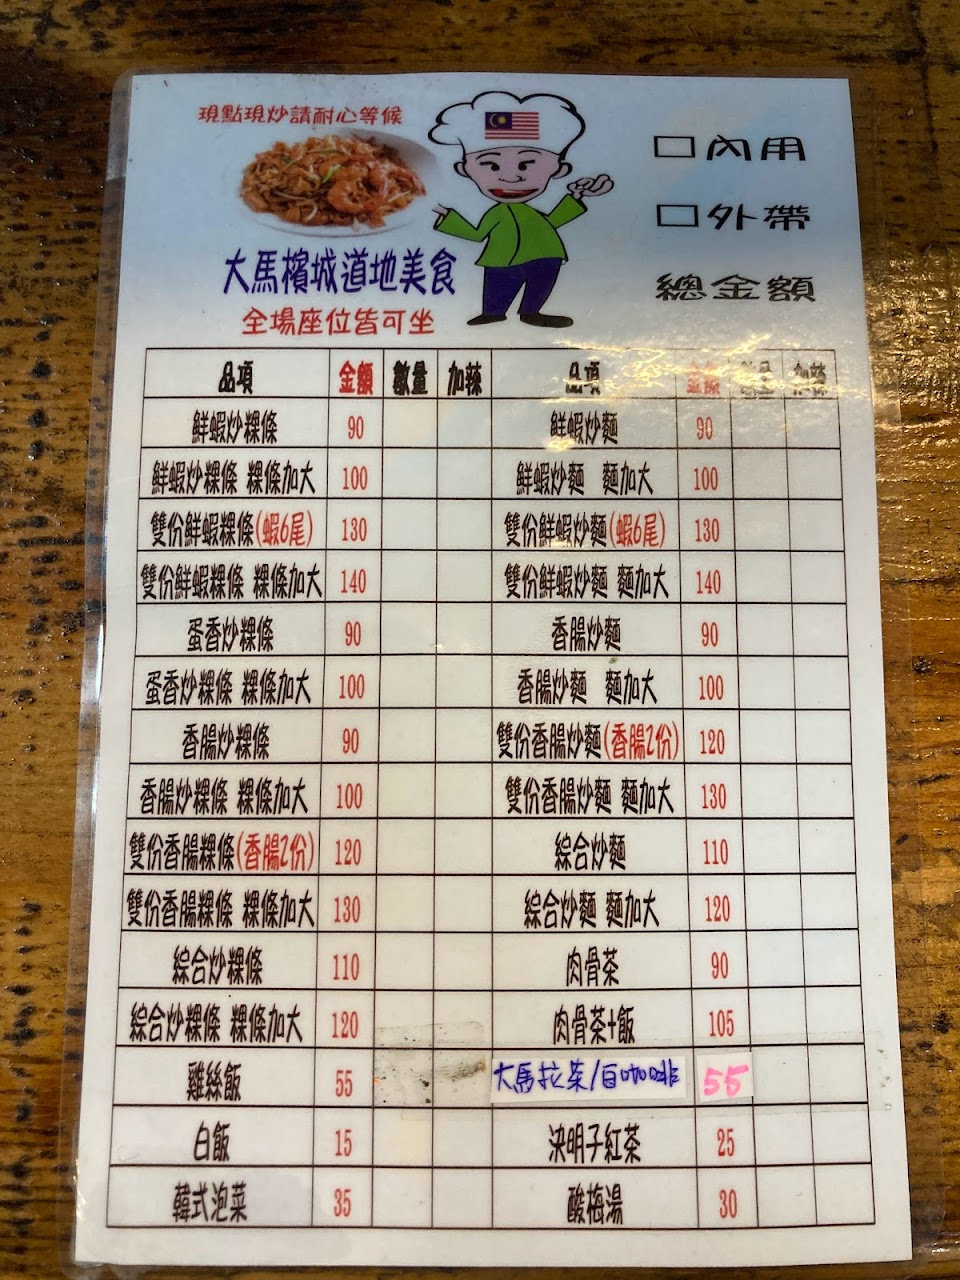 現點現炒請耐心等候
大馬檳城道地美食
全場座位皆可坐
□內用
□外帶
總金額
品項 金額 數量 加辣 品項 金額 數量 加辣
鮮蝦炒粿條 90 鮮蝦炒麵 90
鮮蝦炒粿條 粿條加大 100 鮮蝦炒麵 麵加大 100
雙份鮮蝦粿條(蝦6尾) 130 雙份鮮蝦炒麵(蝦6尾) 130
雙份鮮蝦粿條 粿條加大 140 雙份鮮蝦炒麵 麵加大 140
蛋香炒粿條 90 香腸炒麵 90
蛋香炒粿條 粿條加大 100 香腸炒麵 麵加大 100
香腸炒粿條 90 雙份香腸炒麵(香腸2份) 120
香腸炒粿條 粿條加大 100 雙份香腸炒麵 麵加大 130
雙份香腸粿條(香腸2份) 120 綜合炒麵 110
雙份香腸粿條 粿條加大 130 綜合炒麵 麵加大 120
綜合炒粿條 110 肉骨茶 90
綜合炒粿條 粿條加大 120 肉骨茶+飯 105
雞絲飯 55 大馬拉茶/白咖啡 55
白飯 15 決明子紅茶 25
韓式泡菜 35 酸梅湯 30